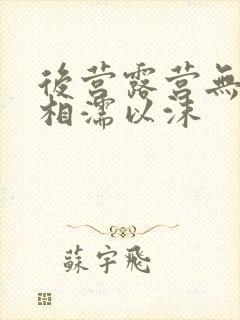 後营露营無
相濡以沫
蘇宇飛